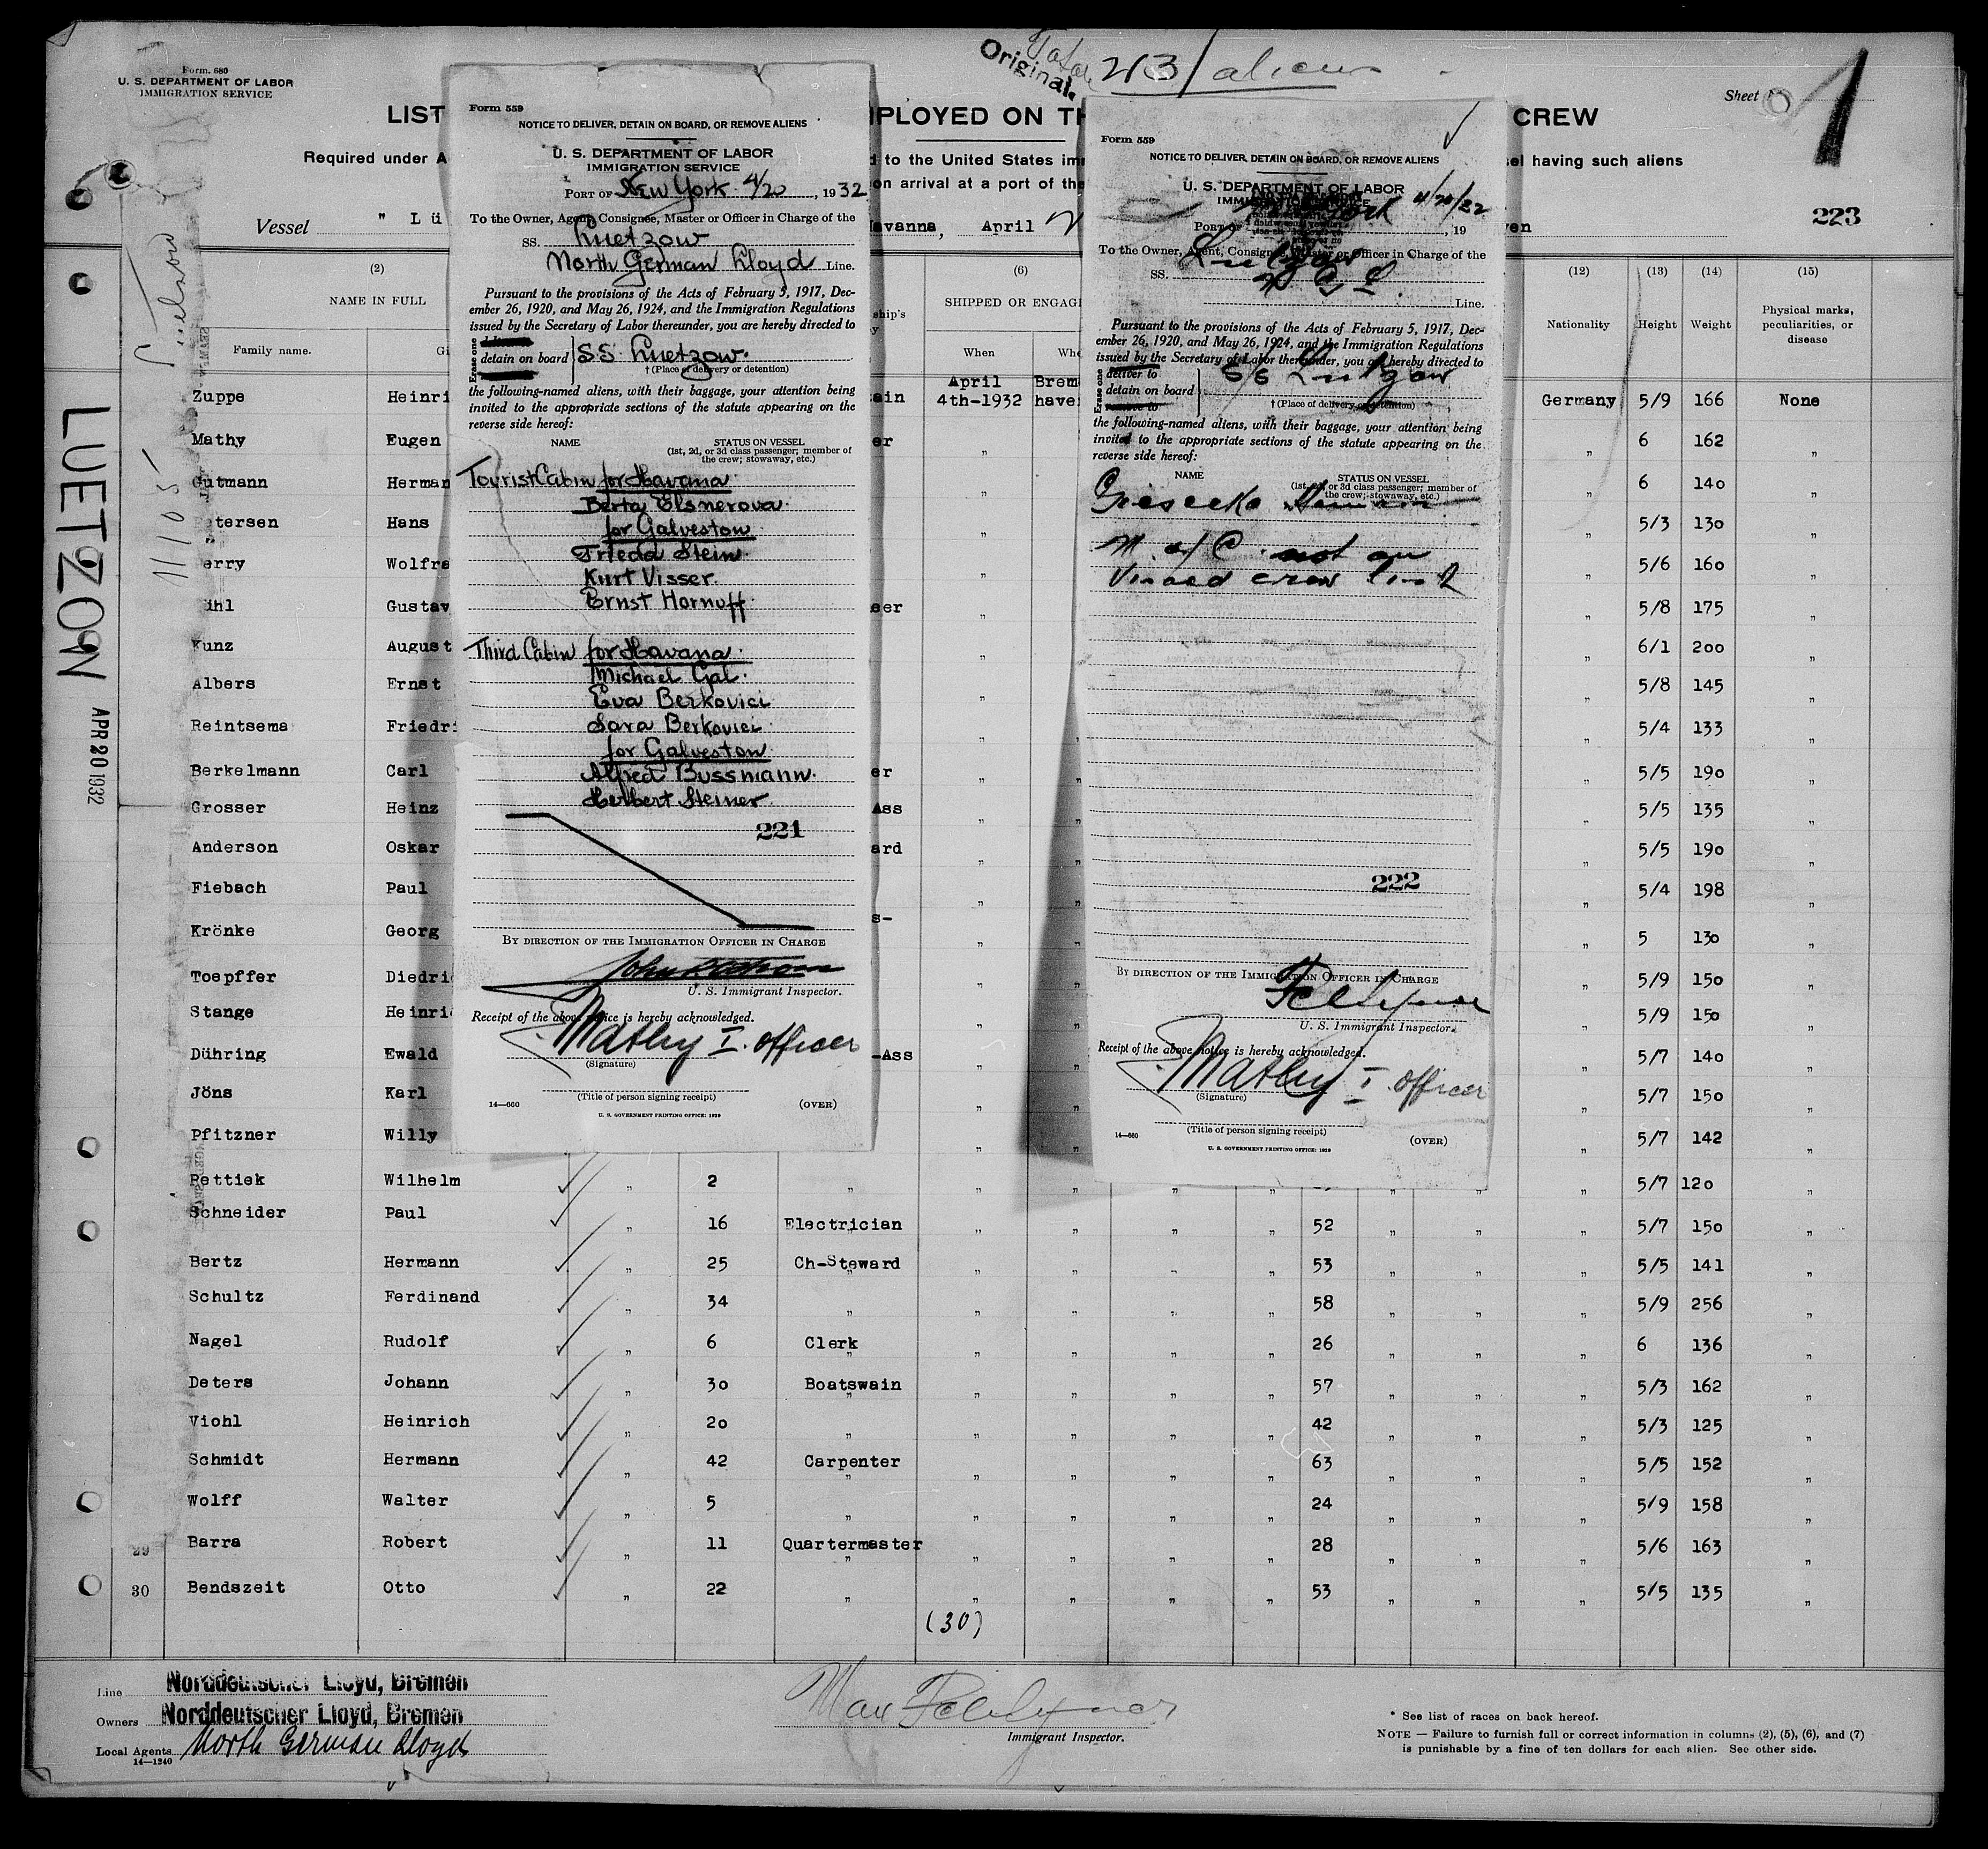 Form. 680
U. S. DEPARTMENT OF LABOR
IMMIGRATION SERVICE
Original.
213 aliens
Sheet
1
LIST
MPLOYED ON TH
CREW
Required under A
d to the United States imm
el having such aliens
on arrival at a port of the
Vessel " Lü
avanna, April
ven
223
(2) (6) (12) (13) (14) (15)
NAME IN FULL
Family name.
SHIPPED OR ENGAG
When
Whe
Nationality
Height
Weight
Physical marks, peculiarities, or disease
LUETZOW APR 20 1932
11105
Zuppe Heinri ain April 4th-1932 Brem have Germany 5/9 166 None
Mathy Eugen er " " 6 162 "
Gutmann Herman " " 6 140 "
tersen Hans " " 5/3 130 "
erry Wolfra " " 5/6 160 "
ühl Gustav eer " " 5/8 175 "
Kunz August " " 6/1 200 "
Albers Ernst " " 5/8 145 "
Reintsema Friedri " " 5/4 133 "
Berkelmann Carl er " " 5/5 190 "
Grosser Heinz Ass " " 5/5 135 "
Anderson Oskar ard " " 5/5 190 "
Fiebach Paul " " 5/4 198 "
Krönke Georg s- " " 5 130 "
Toepffer Diedri " " 5/9 150 "
Stange Heinri " " 5/9 150 "
Dühring Ewald -Ass " " 5/7 140 "
Jöns Karl " " 5/7 150 "
Pfitzner Willy " " 5/7 142 "
Pettiek Wilhelm " 2 " " " " " " " " 5/7 120 "
Schneider Paul " 16 Electrician " " " " 52 " " " 5/7 150 "
Bertz Hermann " 25 Ch-Steward " " " " 53 " " " 5/5 141 "
Schultz Ferdinand " 34 " " " " " 58 " " " 5/9 256 "
Nagel Rudolf " 6 Clerk " " " " 26 " " " 6 136 "
Deters Johann " 30 Boatswain " " " " 57 " " " 5/3 162 "
Viohl Heinrich " 20 " " " " " 42 " " " 5/3 125 "
Schmidt Hermann " 42 Carpenter " " " " 63 " " " 5/5 152 "
Wolff Walter " 5 " " " " " 24 " " " 5/9 158 "
29 Barra Robert " 11 Quartermaster " " " " 28 " " " 5/6 163 "
30 Bendszeit Otto " 22 " " " " " 53 " " " 5/5 135 "
(30)
Line Norddeutscher Lloyd, Bremen
Owners Norddeutscher Lloyd, Bremen
Local Agents North German Lloyd
14—1240
Immigrant Inspector.
* See list of races on back hereof.
NOTE — Failure to furnish full or correct information in columns (2), (5), (6), and (7)
is punishable by a fine of ten dollars for each alien. See other side.
Form 559
NOTICE TO DELIVER, DETAIN ON BOARD, OR REMOVE ALIENS
U. S. DEPARTMENT OF LABOR
IMMIGRATION SERVICE
PORT OF New York 4/20, 1932
To the Owner, Agent, Consignee, Master or Officer in Charge of the
SS. Luetzow
North German Lloyd Line.
Pursuant to the provisions of the Acts of February 5, 1917, Dec-
ember 26, 1920, and May 26, 1924, and the Immigration Regulations
issued by the Secretary of Labor thereunder, you are hereby directed to
Erase one
detain on board
SS Luetzow.
† (Place of delivery or detention)
the following-named aliens, with their baggage, your attention being
invited to the appropriate sections of the statute appearing on the
reverse side hereof:
NAME STATUS ON VESSEL
(1st, 2d, or 3d class passenger; member of
the crew; stowaway, etc.)
Tourist Cabin for Havana
Berta Elsnerova
for Galveston
Frieda Stein
Kurt Visser
Ernst Hornuff
Third Cabin for Havana
Michael Gal.
Eva Berkovici
Sara Berkovici
for Galveston
Alfred Bussmann.
Herbert Steiner
221
BY DIRECTION OF THE IMMIGRATION OFFICER IN CHARGE
U. S. Immigrant Inspector.
Receipt of the above notice is hereby acknowledged.
E. Mathy I. Officer
(Signature)
(Title of person signing receipt)
14—660 (OVER)
U. S. GOVERNMENT PRINTING OFFICE: 1929
Form 559
NOTICE TO DELIVER, DETAIN ON BOARD, OR REMOVE ALIENS
U. S. DEPARTMENT OF LABOR
PORT OF York 4/20/32, 19
To the Owner, Agent, Consignee, Master or Officer in Charge of the
SS. Lutzow
N G L Line.
Pursuant to the provisions of the Acts of February 5, 1917, Dec-
ember 26, 1920, and May 26, 1924, and the Immigration Regulations
issued by the Secretary of Labor thereunder, you are hereby directed to
Erase one
deliver to
detain on board
remove to
S/S Lutzow
† (Place of delivery or detention)
the following-named aliens, with their baggage, your attention being
invited to the appropriate sections of the statute appearing on the
reverse side hereof:
NAME STATUS ON VESSEL
(1st, 2d, or 3d class passenger; member of
the crew; stowaway, etc.)
Giesecke
M. of C. not on
Visaed crew list
222
BY DIRECTION OF THE IMMIGRATION OFFICER IN CHARGE
U. S. Immigrant Inspector.
Receipt of the above notice is hereby acknowledged.
E. Mathy I. Officer
(Signature)
(Title of person signing receipt)
14—660 (OVER)
U. S. GOVERNMENT PRINTING OFFICE: 1929